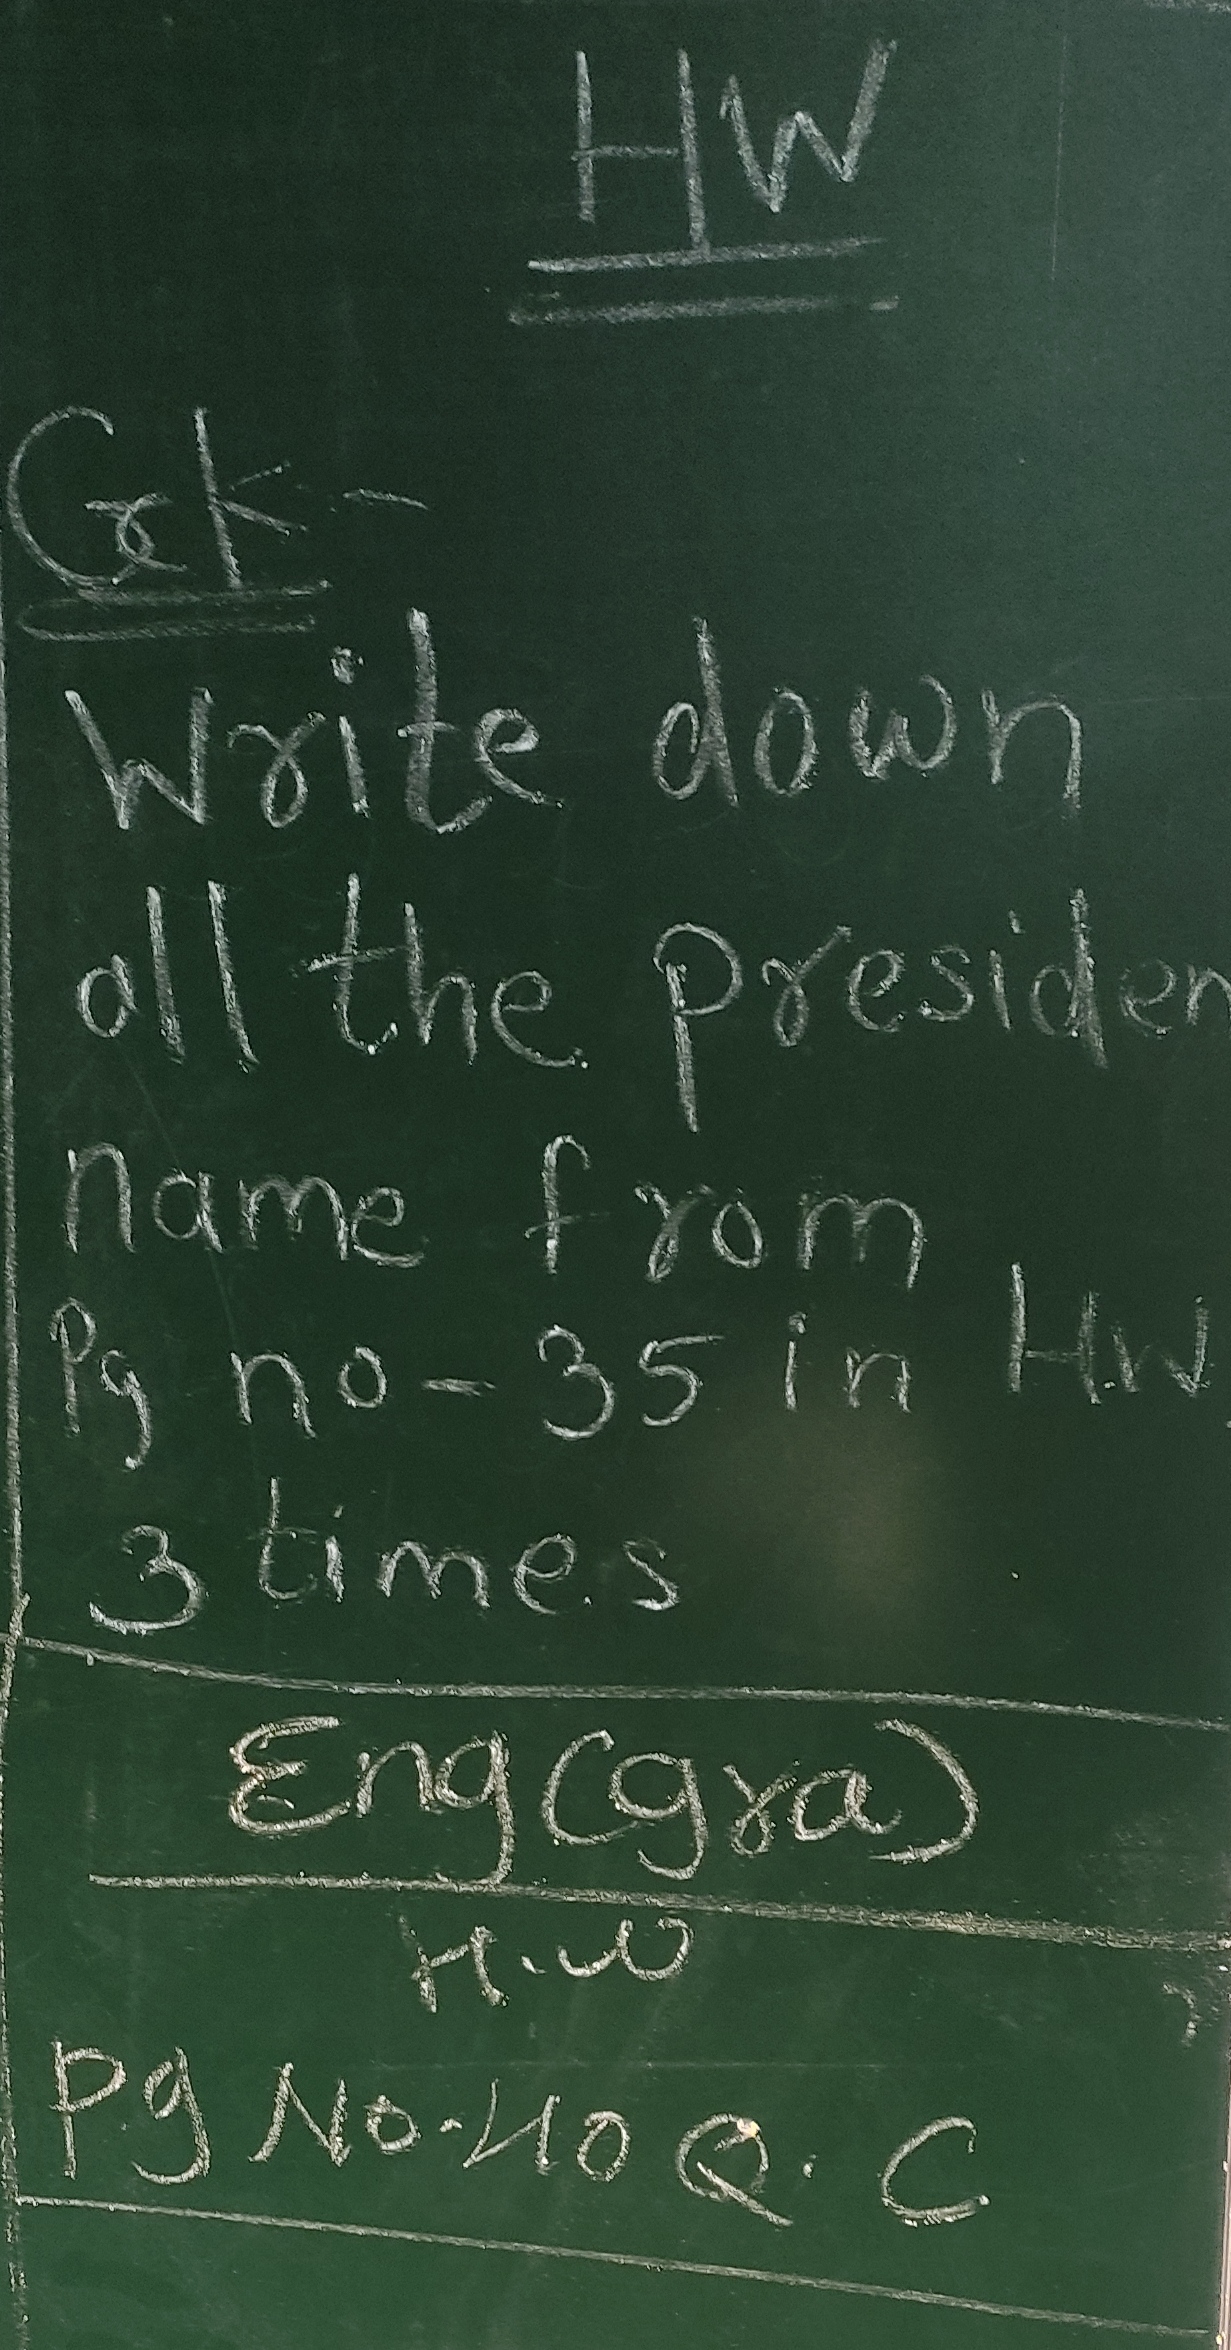 HW
Gk -
Write down
all the presiden
name from
Pg no - 35 in H.W
3 times
Eng (gra)
H.W
Pg No. 40 Q. C